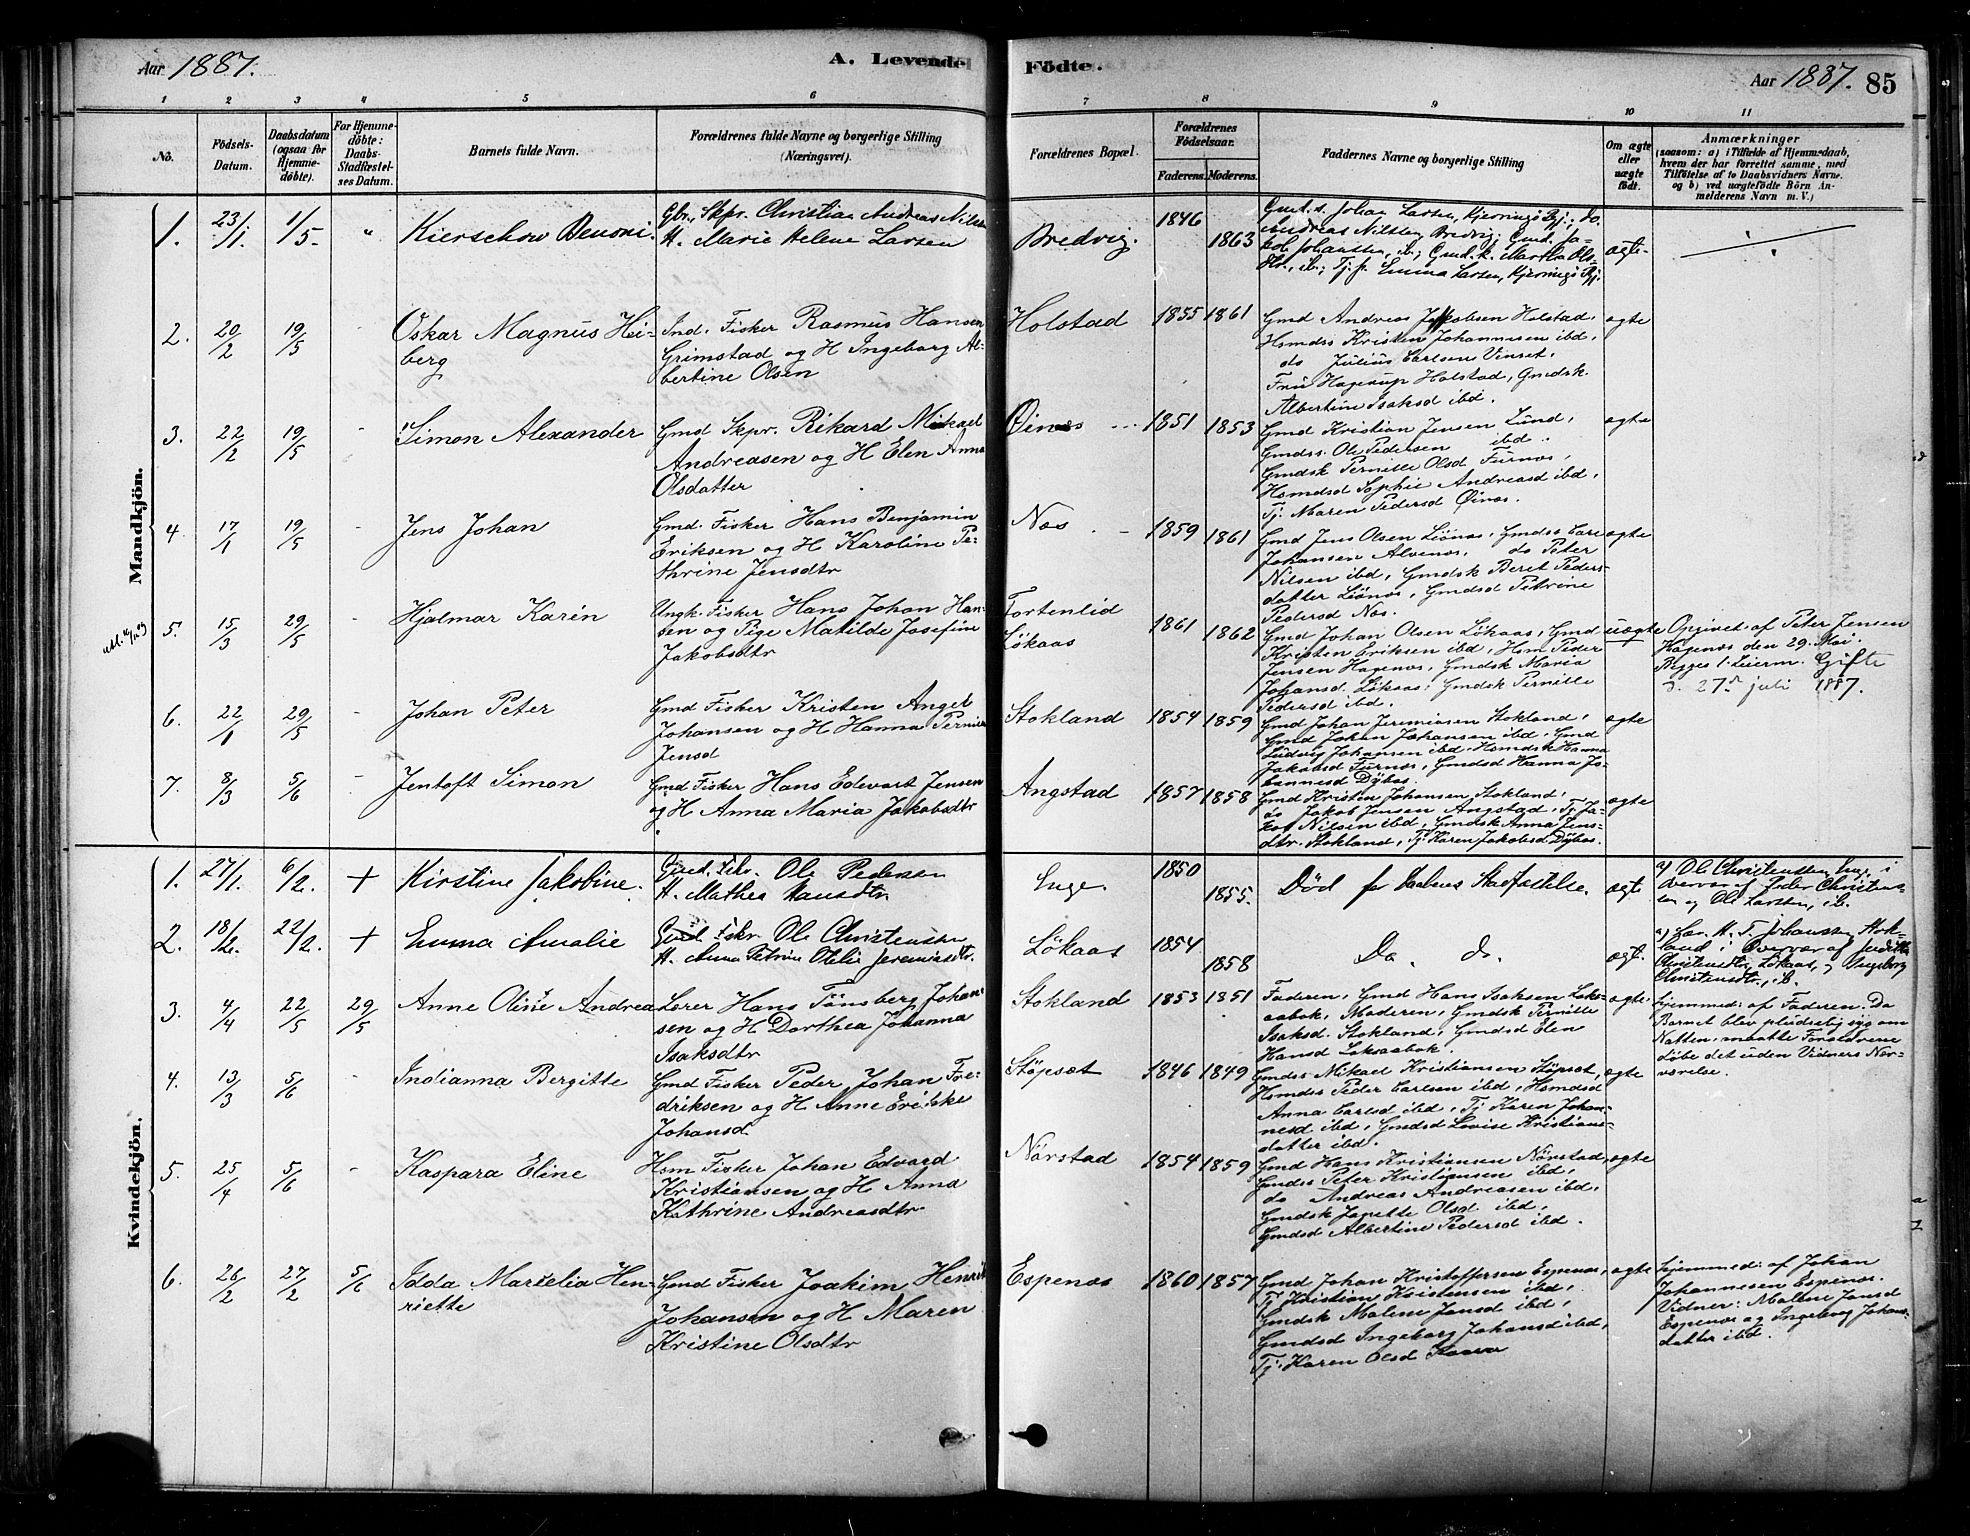 Aar 1887.
A. Levende
Födte.
Aar 1887. 85
1 2 3 4 5 6 7 8 9 10 11
No.
Födsels-
Datum.
Daabsdatum
(ogsaa for
Hjemme-
döbte).
For Hjemme-
döbte:
Daabs-
Stadfæstel-
ses Datum.
Barnets fulde Navn.
Forældrenes fulde Navne og borgerlige Stilling
(Næringsvei).
Forældrenes Bopæl.
Forældrenes
Födselsaar.
Faderens. Moderens.
Faddernes Navne og borgerlige Stilling
Om ægte
eller
uægte
födt.
Anmærkninger
(saasom: a) i Tilfælde af Hjemmedaab,
hvem der har forrettet samme, med
Tilföielse af to Daabsvidners Navne.
og b) ved uægtefödte Börn An-
melderens Navn m. V.)
Mandkjön.
1. 23/1. 1/5. " Kierschow Benoni.
Gbr., Skpr. Christian Andreas Nilsen
H. Marie Helene Larsen
Bredvig. 1846 1863
Gmd. s. Johan Larsen, Kjerringö Pgj.; do.
Andreas Nilsen, Bredvig; Gmd. Ja-
kob Johansen, ib.; Gmd. k. Martha Ols-
dtr., ib.; Tj. p. Emma Larsen, Kjerringö Pgj.
ægte
2. 20/2 19/5 - Oskar Magnus Hei-
berg
Ind. Fisker Rasmus Hansen
Grimstad og H Ingeborg Al-
bertine Olsen
Holstad 1855 1861
Gmd Andreas Jakobsen Holstad,
Hsmdss Kristen Johannesen ibd,
do Julius Carlsen Vinset,
Fru Hagerup Holstad, Gmdsk.
Albertine Isaksd ibd.
ægte
3. 22/2 19/5 - Simon Alexander
Gmd Skpr. Rikard Mikael
Andreasen og H Elen Anna
Olsdatter
Öinæs 1851 1853
Gmd Kristian Jensen Lund,
Gmdss. Ole Pedersen ibd.
Gmdsk Pernille Olsd Furnes,
Hsmdsd Sophie Andreasd ibd,
Tj. Maren Pedersd Öinæs.
ægte
4. 17/1 19/5 - Jens Johan
Gmd. Fisker Hans Benjamin
Eriksen og H Karoline Pe-
thrine Jensdtr
Næs 1859 1861
Gmd Jens Olsen Liönæs, Gmdss Carl
Johansen Alvenæs, do Peter
Nilsen ibd, Gmdsk Beret Peders-
datter Liönæs, Gmdsd Petrine
Pedersd Næs.
ægte
5. 15/3 29/5 Hjalmar Karin
Ungk. Fisker Hans Johan Han-
sen og Pige Matilde Josefine
Jakobsdtr
Tortenlid
Lökaas
1861 1862
Gmd Johan Olsen Lökaas, Gmd
Kristen Eriksen ibd, Hsm Peder
Jensen Hagenæs, Gmdsk Maria
Johansd. Lökaas, Gmdsk Pernille
Pedersd ibd.
uægte
Opgivet af Peter Jensen
Hagenæs den 29. Mai.
Begges 1. Leierm. Gifte
d. 27de juli 1887.
6. 22/1 29/5 - Johan Peter
Gmd Fisker Kristen Angel
Johansen og H Hanna Pernille
Jensd
Stokland 1854 1859
Gmd Johan Jeremiasen Stokland,
Gmd Johan Johansen ibd, Gmd
Ludvig Johansen ibd. Hsmdsk Hanna
Jakobsd Furnes, Gmdsd Hanna Jo-
hannesd Dybos.
ægte
7. 8/3 5/6 - Jentoft Simon
Gmd Fisker Hans Edevart Jensen
og H Anna Maria Jakobsdtr
Angstad 1857 1858
Gmd Kristen Johansen Stokland,
do Jakob Jensen Angstad, Tj. Ja-
kob Nilsen ibd, Gmdsk Anna Jens-
dtr. Stokland, Tj. Karen Jakobsd Dybos.
ægte
Kvindekjön.
1. 27/1. 6/2. + Kirstine Jakobine.
Gmd. Fskr. Ole Pedersen
H. Mathea Hansdtr.
Enge. 1850 1855.
Död før Daabens Stadfæstelse.
ægte
a) Ole Christensen Enge, i
Overvær af Peder Christens-
sen og Ole Larsen, ib.
2. 18/2. 22/2. + Emma Amalie
Gmd. Fskr. Ole Christensen
H. Anna Petrine Otelie Jeremiasdtr.
Lökaas 1854 1858
Do. do.
ægt.
a) Lær. H. T. Johansen Stok-
land i Overvær af
Christensdtr, Lökaas, og Ingeborg
Christensdtr., ib.
3. 4/4 22/5 29/5 Anne Oline Andrea
Lærer Hans Tönsberg Johan-
sen og H Dorthea Johanna
Isaksdtr
Stokland 1853 1851
Faderen, Gmd Hans Isaksen Laks-
aabok, Moderen, Gmdsk Pernille
Isaksd. Stokland, Gmdsd Elen
Hansd Laksaabok.
ægte
Hjemmed: af Faderen. Da
Barnet blev pludselig syg om
Natten, maatte Forældrene
döbe det uden Vidners Nær-
værelse.
4. 13/3 5/6 - Indianna Bergitte
Gmd Fisker Peder Johan Fre-
driksen og H. Anne Erikke
Johansd
Stöpset 1846 1849
Gmdss Mikael Kristiansen Stöpset,
Hsmdss Peder Carlsen ibd, Hsmdsd
Anna Carlsd ibd, Tj Karen Johan-
nesd ibd, Gmdsd Lovise Kristians-
datter ibd.
ægte
5. 25/4 5/6 - Kaspara Eline
Hsm Fisker Johan Edvard
Kristiansen og H Anna
Kathrine Andreasdtr
Nörstad 1854 1859
Gmd Hans Kristiansen Nörstad,
Gmdss Peter Kristiansen ibd,
do Andreas Andreasen ibd,
Gmdsk Janette Olsd ibd,
Gmdsd Albertine Pedersd ibd.
ægte
6. 26/2 27/2 5/6 Idda Marselia Hen-
riette
Gmd Fisker Joakim Henrik
Johansen og H Maren
Kristine Olsdtr
Espenæs 1860 1857
Gmd Johan Kristoffersen Espenæs,
Tj Kristian Kristensen ibd,
Gmdsk Malene Jansd ibd,
Gmdsd Ingeborg Johansd ibd,
Tj. Karen Olsd
ægte
Hjemmed: af Johan
Johannesen Espenæs.
Vidner: Malene Jansd
Espenæs og Ingeborg Johans-
datter ibd.